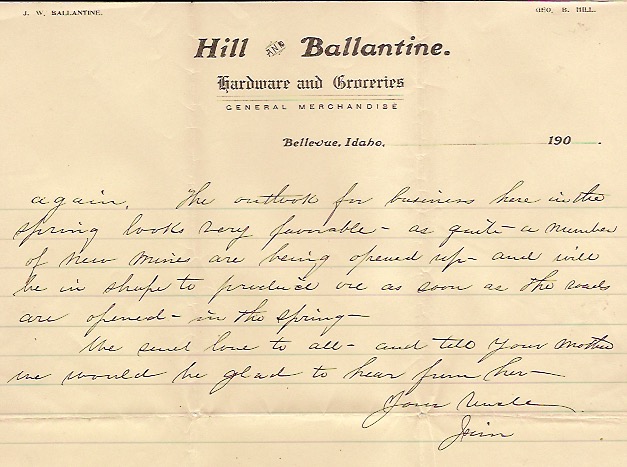 J. W. BALLANTINE.
GEO. B. HILL.
Hill AND Ballantine.
Hardware and Groceries
GENERAL MERCHANDISE
Bellevue, Idaho, 190
again. The outlook for business here in the
spring looks very favorable - as quite - a number
of new mines are being opened up - and will
be in shape to produce ore as soon as the roads
are opened - in the spring -
We send love to all - and tell your mother
we would be glad to hear from her -
Your Uncle
Jim